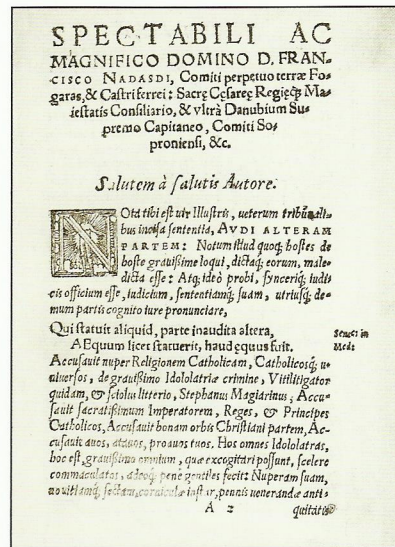 SPECTABILI AC
MAGNIFICO DOMINO D. FRAN-
CISCO NADASDI, Comiti perpetuo terræ Fo-
garas, & Castri ferrei: Sacrę Cęsareę Regięq́; Ma-
iestatis Consiliario, & vltrà Danubium Su-
premo Capitaneo, Comiti So-
proniensi, &c.
Salutem à salutis Autore.
NOta tibi est uir Illustris, ueterum tribunali-
bus incisa sententia, AVDI ALTERAM
PARTEM: Notum illud quoq́; hostes de
hoste grauißime loqui, dictaq́; eorum, male-
dicta esse: Atq́; ideò probi, synceriq́; iudi-
cis officium esse, iudicium, sententiamq́; suam, utriusq́; de-
mum partis cognito iure pronunciare,
Qui statuit aliquid, parte inaudita altera,
AEquum licet statuerit, haud ęquus fuit.
Senec: in
Mede
Accusauit nuper Religionem Catholicam, Catholicosq́; u-
niuersos, de grauißimo Idololatriæ crimine, Vitilitigator
quidam, & sciolus litterio, Stephanus Magiarinus; Accu-
sauit sacratißimum Imperatorem, Reges, & Principes
Catholicos, Accusauit bonam orbis Christiani partem, Ac-
cusauit auos, atauos, proauos tuos. Hos omnes Idololatras,
hoc est, grauißimo omnium, quæ excogitari possunt, scelere
commaculatos, adeoq́; penè gentiles fecit: Nuperam suam,
nouitiamq́; sectam, corniculæ instar, pennis uenerandæ anti-
A 2
quitatis